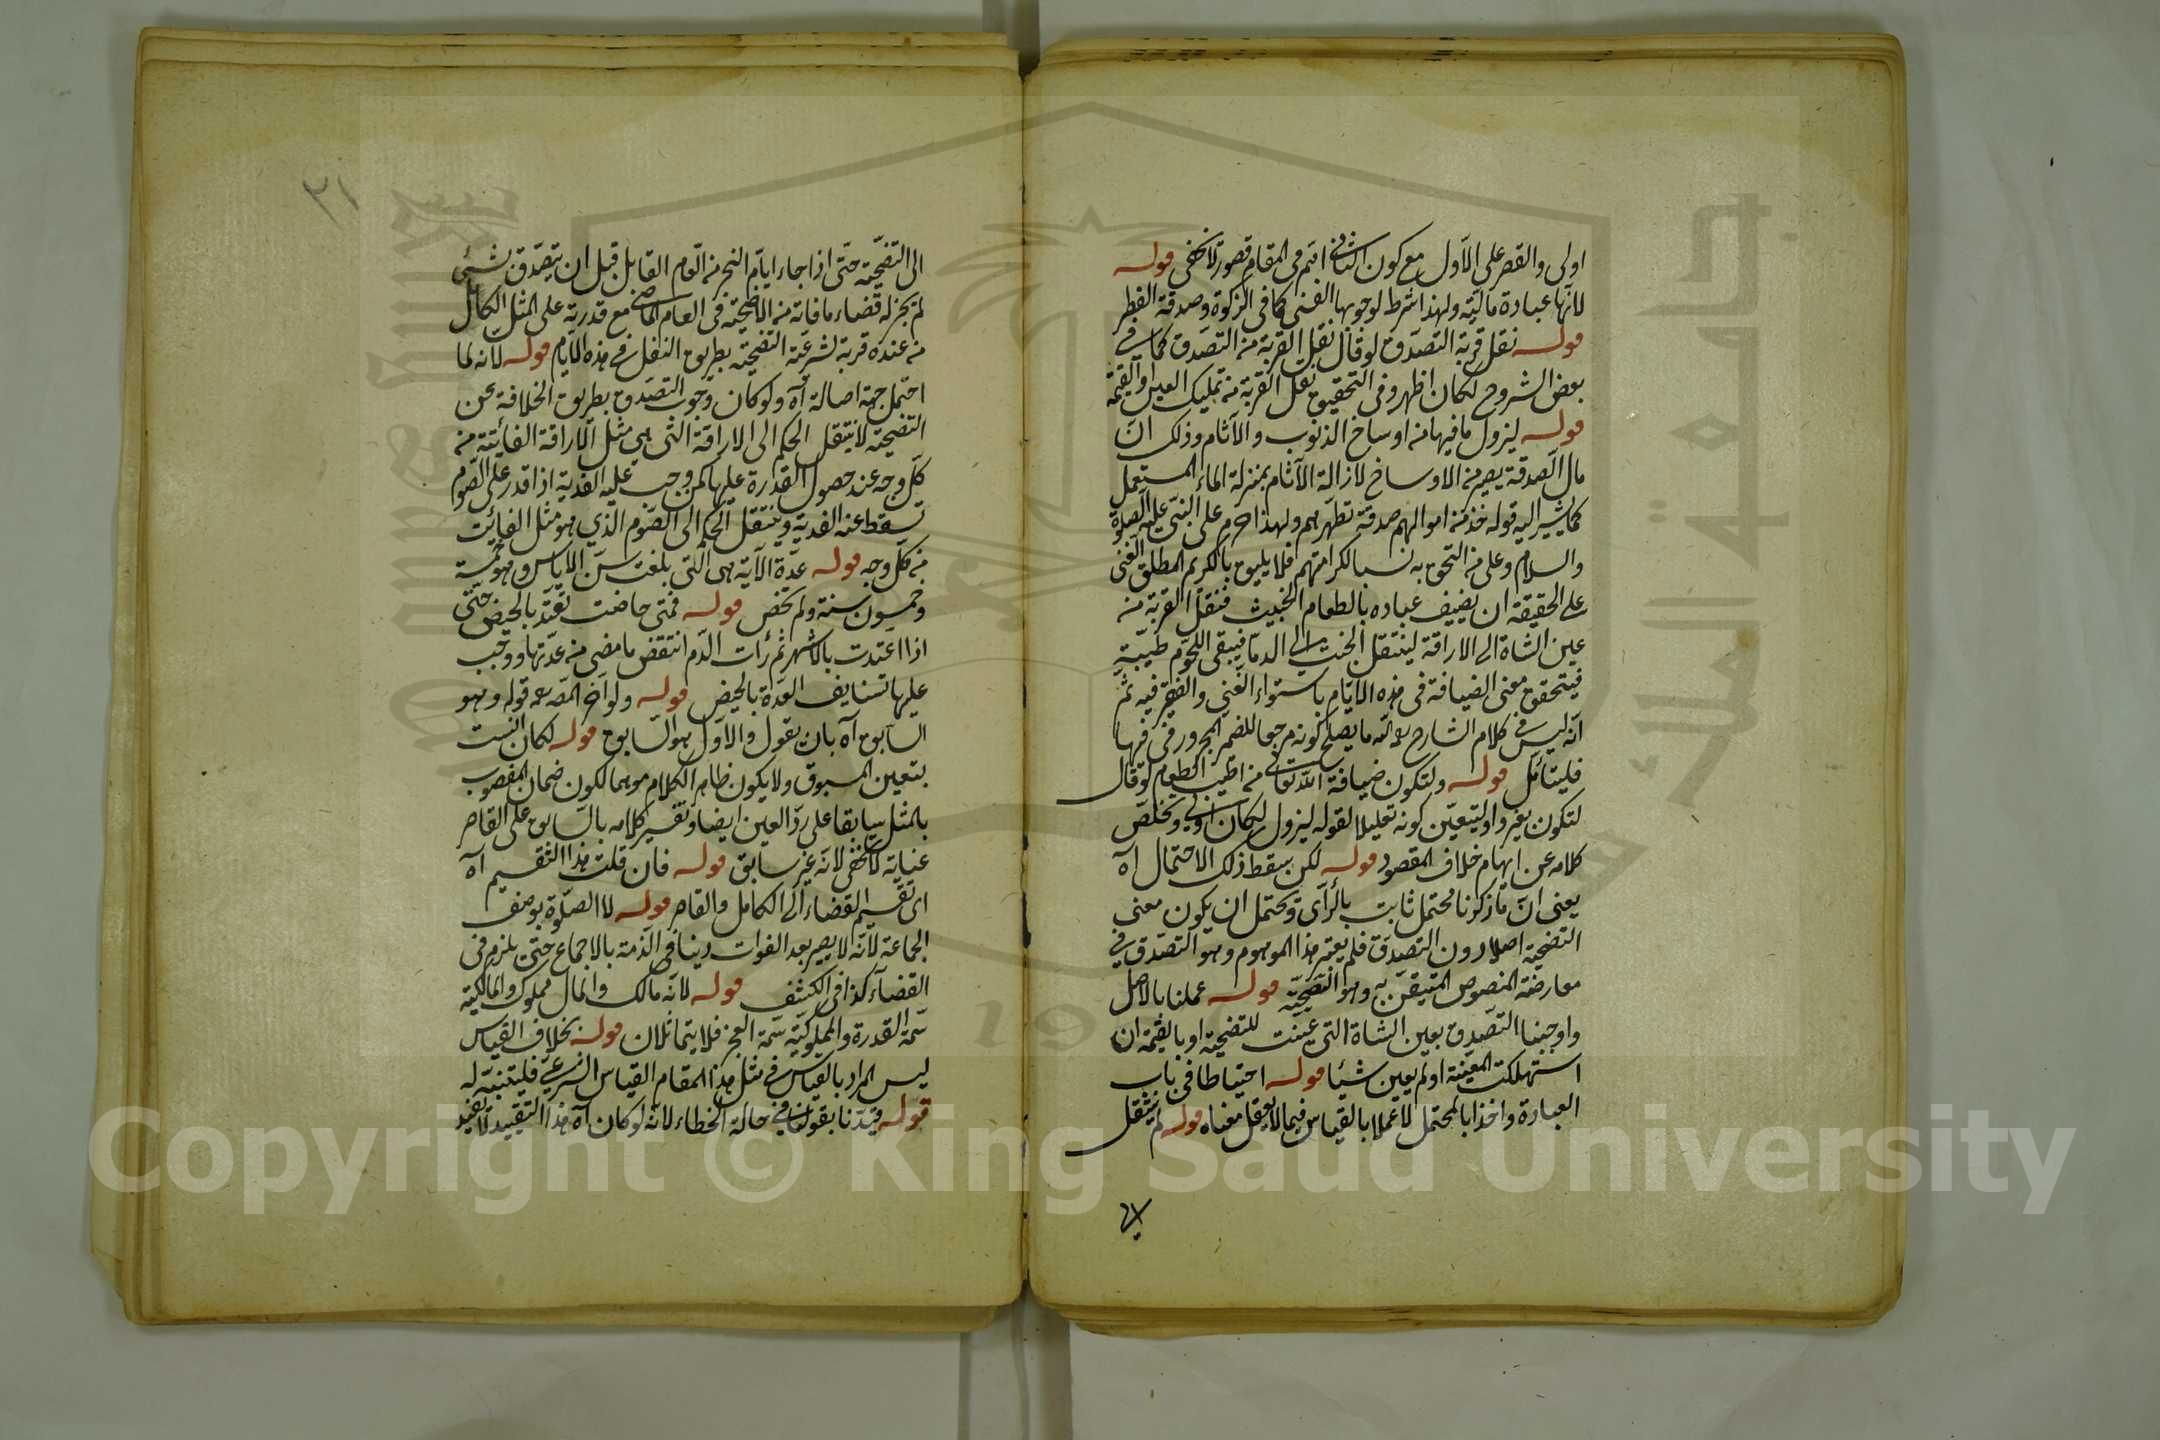 اولى والقصر على الاول مع كون الثانى اتم فى المقام قصور لا يخفى قوله
لانها عبادة مالية ولهذا شرط لوجوبها الغنى كما فى الزكوة وصدقة الفطر
قوله نقل قربة التصدق لو قال نقل القربة من التصدق كما فى
بعض الشروح لكان اظهر وفى التحقيق نقل القربة من تمليك العين او القيمة
قوله ليزول ما فيها من اوساخ الذنوب والآثام وذلك ان
مال الصدقة يصير من الاوساخ لازالة الآثام بمنزلة الماء المستعمل
كما يشير اليه قوله خذ من اموالهم صدقة تطهرهم ولهذا حرم على النبى عليه الصلوة
والسلام وعلى من التحق به نسبا لكرامتهم فلا يليق بالكريم المطلق الغنى
على الحقيقة ان يضيف عباده بالطعام الخبيث فنقل القربة من
عين الشاة الى الاراقة لينتقل الخبث الى الدماء فيبقى اللحوم طيبة
فيتحقق معنى الضيافة فى هذه الايام باستواء الغنى والفقير فيه ثم
انه ليس فى كلام الشارح رحمه الله ما يصلح كونه مرجعا للضمير المجرور فى فيها
فليتأمل قوله ولتكون ضيافة الله تعالى من اطيب الطعام لو قال
لتكون بغير واو ليتعين كونه تعليلا لقوله ليزول لكان اولى ويخلص
كلامه عن ايهام خلاف المقصود قوله لكن سقط ذلك الاحتمال آه
يعنى ان ما ذكرنا محتمل ثابت بالرأى ويحتمل ان يكون معنى
التضحية اصلا دون التصدق فلم يعتبر هذا الموهوم وهو التصدق فى
معارضة المنصوص المتيقن به وهو التضحية قوله عملنا بالاصل
واوجبنا التصدق بعين الشاة التى عينت للتضحية او بالقيمة ان
استهلكت المعينة او لم يعين شيئا قوله احتياطا فى باب
العبادة واخذا بالمحتمل لا عملا بالقياس فيما لا يعقل معناه قوله لم ينتقل
الى
٢١
الى التضحية حتى اذا جاء ايام النحر من العام القابل قبل ان يتصدق بشئ
لم يجز له قضاء ما فاته من الاضحية فى العام الماضى مع قدرته على المثل الكامل
من عنده قربة لشرعية التضحية بطريق النفل فى هذه الايام قوله لانه لما
احتمل جهة اصالة آه ولو كان وجوب التصدق بطريق الخلافة عن
التضحية لانتقل الحكم الى الاراقة التى هى مثل الاراقة الفائتة من
كل وجه عند حصول القدرة عليها كمن وجب عليه الفدية اذا قدر على الصوم
تسقط عنه الفدية وينتقل الحكم الى الصوم الذى هو مثل الفائت
من كل وجه قوله عدة الآيسة هى التى بلغت سن الاياس وهو خمسة
وخمسون سنة ولم تحض قوله فمتى حاضت تعتد بالحيض حتى
اذا اعتدت بالاشهر ثم رأت الدم انتقض ما مضى من عدتها ووجب
عليها تستأنف العدة بالحيض قوله ولو اخر المص رحمه قوله وهو
السابق آه بان يقول والاول هو السابق قوله لكان انسب
بتعين المسبوق ولا يكون ظاهر الكلام موهما لكون ضمان المغصوب
بالمثل سابقا على رد العين ايضا وتفسير كلامه بالسابق على القاصر
عناية لا تخفى لانه غير سابق قوله فان قلت هذا التقسيم آه
اى تقسيم القضاء الى الكامل والقاصر قوله لا الصلوة بوصف
الجماعة لانه لا يصير بعد الفوات دينا فى الذمة بالاجماع حتى يلزم فى
القضاء كذا فى الكشف قوله لانه مالك والمال مملوك والمالكية
سمة القدرة والمملوكية سمة العجز فلا يتماثلان قوله بخلاف القياس
ليس المراد بالقياس فى مثل هذا المقام القياس الشرعى فليتنبه له
قوله قيدنا بقولنا فى حالة الخطاء لانه لو كان آه هذا التقييد لا يفيد
جامعة الملك سعود
King Saud University
1957
Copyright © King Saud University